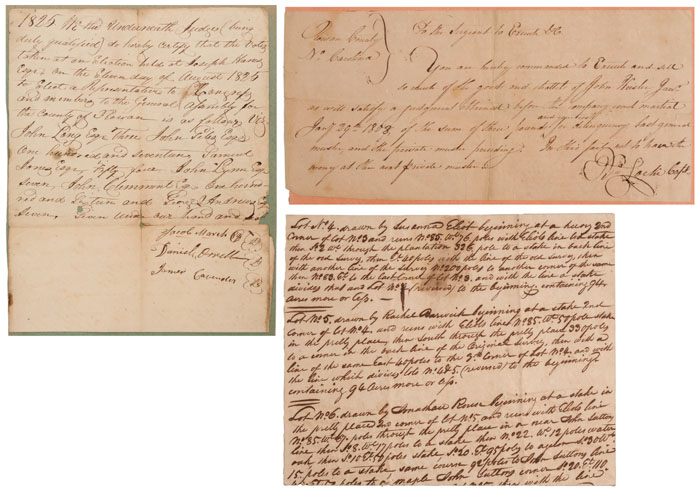 1825 We the Underneath Judges (being
duly qualified) do hereby certify that the Votes
taken at an Election held at Joseph
Esqr. on the Eleven day of August 1825
to Elect a Representative to Congress
and members to the General Assembly for
the County of Rowan is as follows Viz
John Long Esqr Three John Giles Esqr
One hundred and Seventeen Samuel
Jones Esqr Fifty four John Lynn Esqr
Seven, John Clemment Esqr One hund
red and and Andrew Esqr
Seven. Given under our hand and
Jacob March
Daniel
James Cavender
Rowan County
No. Carolina
To the Serjent to Execute &c
You are hereby commanded to Execute and sell
so much of the good and chattel of John Jnr.
as will satisfy a judgment Obtained before the company court martial
Jany 29th 1808 of the sum of three pounds for Delinquency last general
muster, and the private muster preceeding. In this fail not to have the
money at the next private muster
Locke Capt
Lot No. 4. drawn by Susanna Eliot beginning at a hicory 2nd
Corner of lot No 3 and runs No. 85. Wt 76 poles with Eliots line to a stake
then So 2 Wt through the plantation 326 pole to a stake in back line
of the old Survey, then Et 48 poles with the line of the old Survey, then
with another line of the Survey No 200 poles to another corner of the same
then No. 83. Et to the East Court of lot No 3. and with the line a stake
divides that and Lot No. 4 (reversed) to the beginning containing 94
acres more or less. —
Lot No. 5. drawn by Rachel Barwick beginning at a stake 2nd
corner of lot No. 4 and runs with Eliots lines No. 85. Wt 59 pole stake
in the pretty place, then South through the pretty place 330 poles
to a corner in the back line of the Original Survey, then did a
line of the same East 40 poles to the 3d corner of Lot No. 4 and with
the line which divides lots No. 4 & 5 (reversed) to the beginning
containing 94 Acres more or less.
Lot No. 6. drawn by Jonathan Rouse beginning at a stake in
the pretty place 2nd corner of lot No. 5 and runs with Eliots line
No. 85. Wt 67 poles through the pretty place in a near John Suttons
line then So 8. Wt 17 poles to a stake then No 22. Wt 12 poles water
oak then So 10 Et 59 poles stake So 20. Et 95 poly to a
15. poles to a stake same course 92 poles to John Suttons line
poles to a maple John Suttons corner So 20. Et 110
then with the line